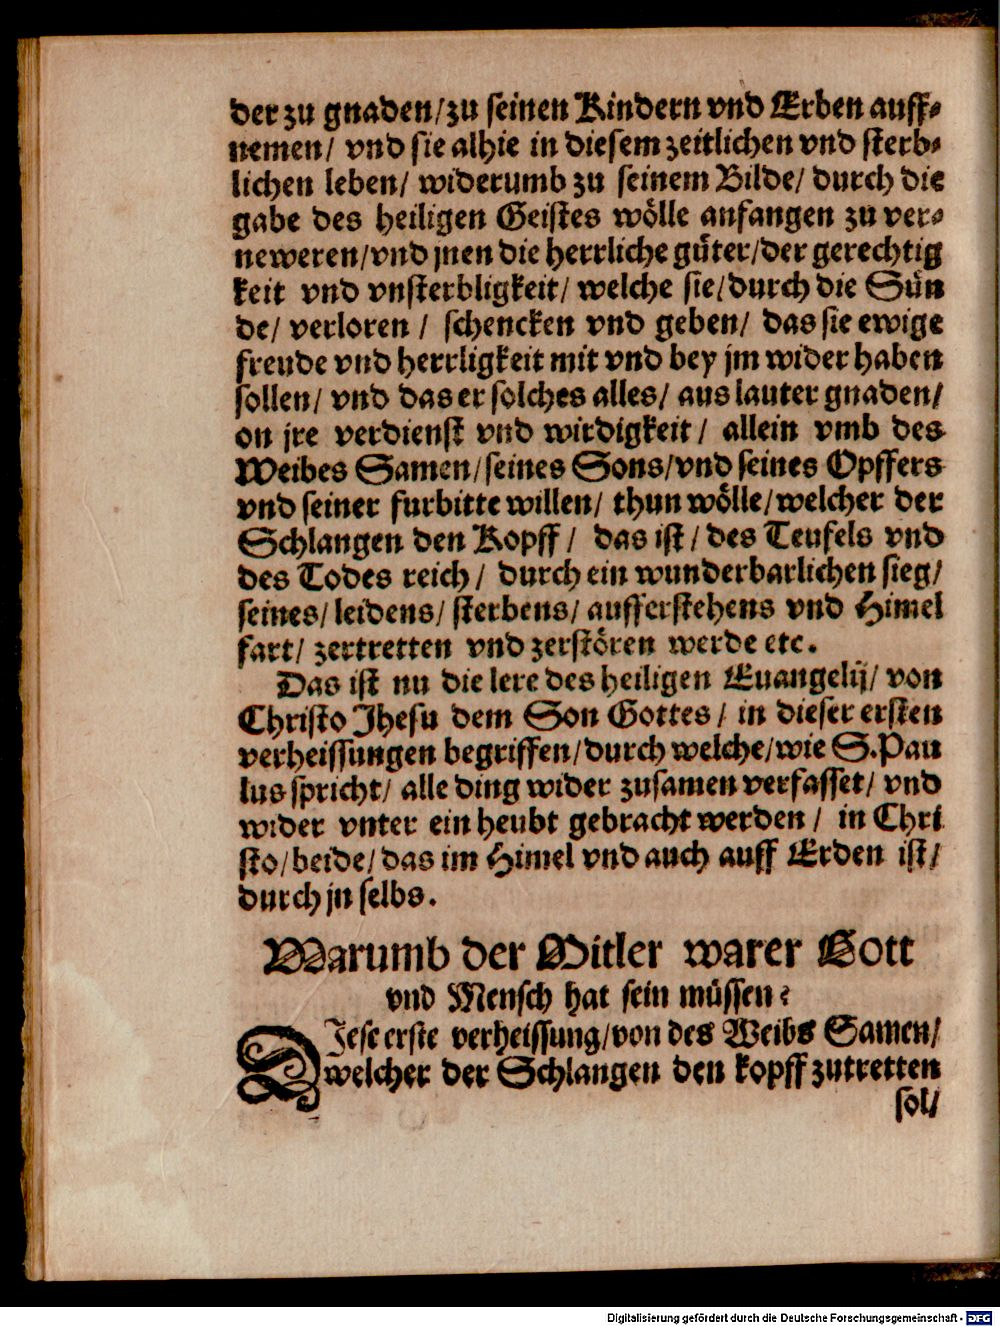 der zu gnaden/zu seinen Kindern vnd Erben auff⸗
nemen/ vnd sie alhie in diesem zeitlichen vnd sterb⸗
lichen leben/ widerumb zu seinem Bilde/ durch die
gabe des heiligen Geistes wölle anfangen zu ver⸗
neweren/vnd jnen die herrliche güter/der gerechtig
keit vnd vnsterbligkeit/ welche sie/durch die Sün
de/ verloren / schencken vnd geben/ das sie ewige
freude vnd herrligkeit mit vnd bey jm wider haben
sollen/ vnd das er solches alles/ aus lauter gnaden/
on jre verdienst vnd wirdigkeit / allein vmb des
Weibes Samen/seines Sons/vnd seines Opffers
vnd seiner furbitte willen/ thun wölle/welcher der
Schlangen den Kopff / das ist / des Teufels vnd
des Todes reich / durch ein wunderbarlichen sieg/
seines/ leidens/ sterbens/ aufferstehens vnd Himel
fart/ zertretten vnd zerstören werde etc.
Das ist nu die lere des heiligen Euangelij/ von
Christo Jhesu dem Son Gottes / in dieser ersten
verheissungen begriffen/durch welche/wie S.Pau
lus spricht/ alle ding wider zusamen verfasset/ vnd
wider vnter ein heubt gebracht werden / in Chri
sto/beide/das im Himel vnd auch auff Erden ist/
durch jn selbs.
Warumb der Mitler warer Gott
vnd Mensch hat sein müssen?
DJese erste verheissung/von des Weibs Samen/
welcher der Schlangen den kopff zutretten
sol/
Digitalisierung gefördert durch die Deutsche Forschungsgemeinschaft - DFG